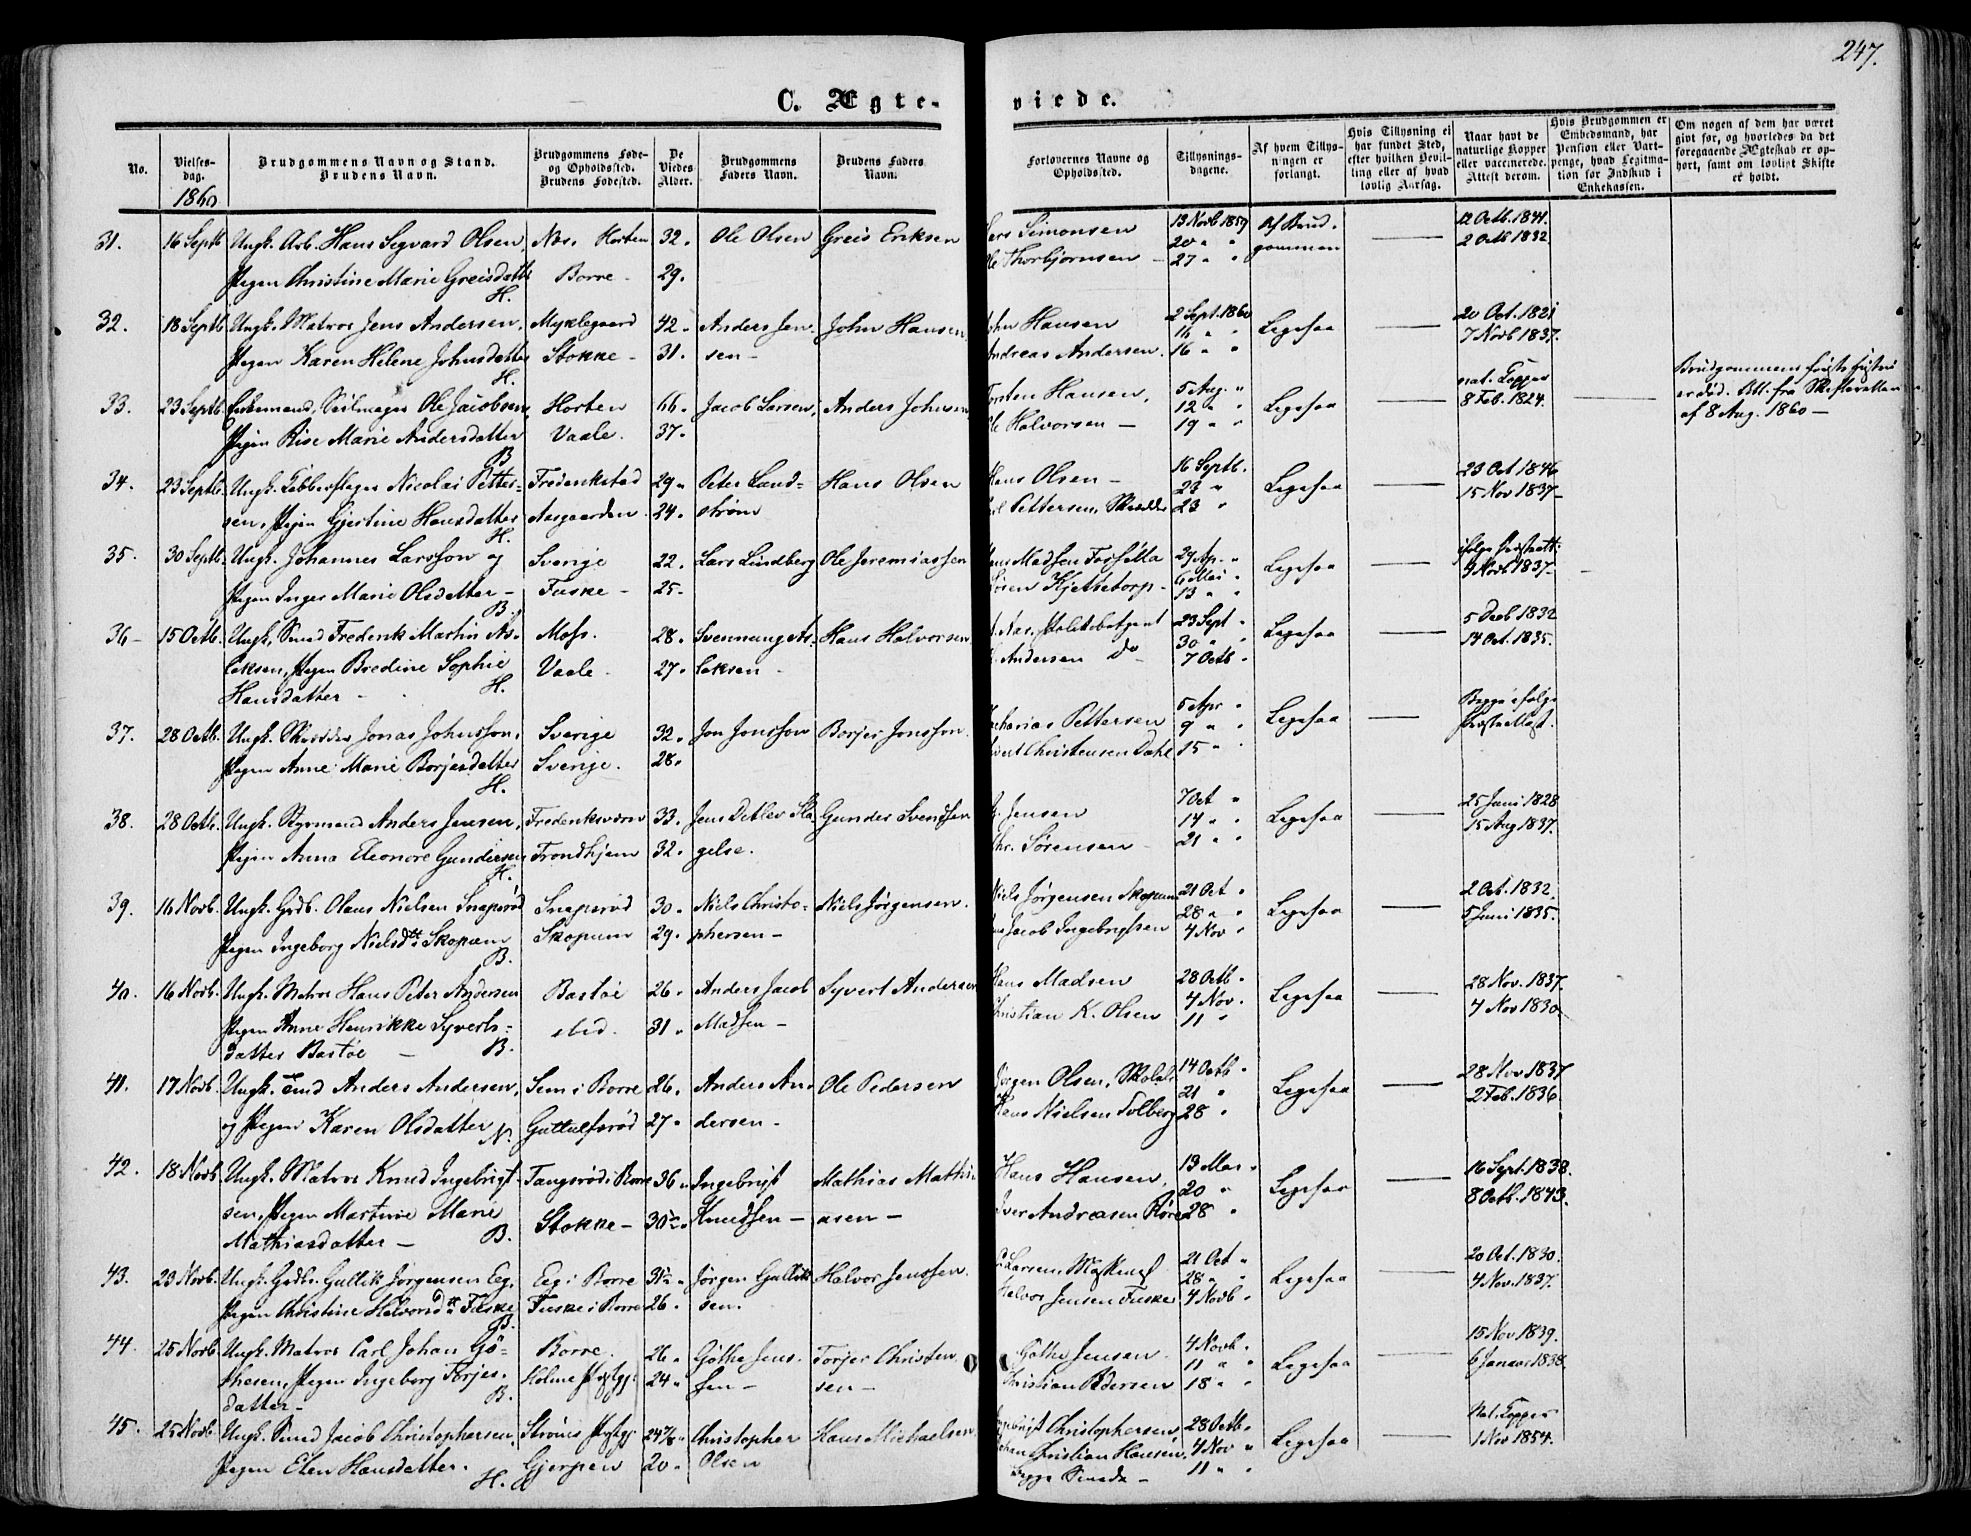 247.
C. Ægte-
viede.
No.
Vielses-
dag.
1860
Brudgommens Navn og Stand.
Brudens Navn.
Brudgommens Føde-
og Opholdssted.
Brudens Fødested.
De
Viedes
Alder.
Brudgommens
Faders Navn.
Brudens Faders
Navn.
Forlovernes Navne og
Opholdssted.
Tillysnings-
dagene.
Af hvem Tillys-
ningen er
forlangt.
Hvis Tillysning ei
har fundet Sted,
efter hvilken Bevil-
ling eller af hvad
lovlig Aarsag.
Naar havt de
naturlige Kopper
eller vaccinerede.
Attest derom.
Hvis Brudgommen er
Embedsmand, har
Pension eller Vart-
penge, hvad Legitma-
tion for Indskud i
Enkekassen.
Om nogen af dem har været
gift før, og hvorledes da det
foregaaende Ægteskab er op-
hørt, samt om lovligt Skifte
er holdt.
31. 16 Septb Ungk. Arb. Hans Segvard Olsen, Horten 32. Ole Olsen Greis Eriksen Simonsen 13 Novb 1859 Af Brud- 12 Octb. 1841.
Pigen Christine Marie Greisdatter Borre - 29. Thorbjørnsen - 20 " " gommen 2 Octb 1832
H. 27 " "
32. 18 Septb. Ungk. Matros Jens Andersen, Myklegaard 42. Anders Jen- John Hansen John Hansen 2 Sept. 1860 Ligesaa 20 Oct. 1821
Pigen Karen Helene Johnsdatter Stokke - 31. sen - Andreas Andersen. 16 " " 7 Novb 1837.
H. 16 " "
33. 23 Septb. Enkemand, Seilmager Ole Jacobsen, Horten 66. Jacob Larsen, Anders Johnsen Torsten Hansen, 5 Aug. " Ligesaa nat. Kopper Brudgommens første Hustru
Pigen Rise Marie Andersdatter Vaale. 37. Ole Halvorsen - 12 " " 8 Feb. 1824. er død. Att. fra Skifteretten
B 19 " " af 8 Aug. 1860 -
34. 23 Septb. Ungk. Nicolai Petter- Fredrikstad 29. Peter Land- Hans Olsen Hans Olsen - 16 Septb. Ligesaa 23 Oct 1846
sen, Pigen Gjertine Hansdatter Aasgaarden. 24. strøm Pettersen, 23 " 15 Nov 1837-
H. 23 "
35. 30 Septb. Ungk. Johannes Larsson og Sverige 22. Lars Lindberg Ole Jeremiassen Madsen 29 Ap. " Ligesaa ifølge
Pigen Inger Marie Olsdatter - Fuske - 25. Kjettetorp - 6 Mai " 9 Novb 1837-
B. 13 " "
36- 15 Octb. Ungk. Smed Fredrik Martin As- Moss. 28. Svennung As- Hans Halvorsen Politibetjent 23 Sept " Ligesaa 5 Decb 1832
laksen, Pigen Bredine Sophie Vaale. 27. laksen - Andersen Do 30 " " 14 Oct. 1835.
Hansdatter - H. 7 Octb "
37. 28 Octb. Ungk. Skrædder Jonas Johnsson, Sverige 32. Jon Jonsson Borjer Jonsson. Zacharias Pettersen 5 Apr " Ligesaa Begge ifølge
Pigen Anne Marie Borjesdatter Sverige. 28. Christensen Dahl 9 " " Præsteattest.
H. 15 " "
38. 28 Octb. Ungk. Styrmand Anders Jensen, Fredriksværn 33. Jens Detlev Sla- Gunder Svendsen Jensen 7 Oct " Ligesaa 25 Juni 1828
Pigen Anna Eleonore Gundersen Trondhjem 32. gelse. Chr. Sørensen 14 " " 15 Aug 1837.
H. 21 " "
39. 16 Novb. Ungk. Grdb. Olaus Nielsen Snapsrød Snapsrød 30. Niels Christo- Niels Jørgensen. Niels Jørgensen Skopum 21 Oct " Ligesaa 2 Oct. 1832.
Pigen Ingeborg Nielsdtt Skopum Skopum 29. phersen - Jacob Ingebrigtsen 28 " " 5 Juni 1835.
B. 4 Nov "
40. 16 Novb. Ungk. Matros Hans Peter Andersen Bastøe 26. Anders Jacob Syvert Andersen Hans Madsen 28 Octb " Ligesaa 28 Nov. 1837.
Pigen Anne Henrikke Syverts- ibid. 31. Madsen - Christian K. Olsen 4 Nov. 4 Nov 1830
datter Bastøe - B. 11 "
41. 17 Novb. Ungk. Smd Anders Andersen, Sem i Borre 26. Anders An- Ole Pedersen Jørgen Olsen, 14 Octb " Ligesaa 28 Nov 1837
og Pigen Karen Olsdatter Gullulfsrød 27. dersen - Hans Nielsen Solberg 21 " 2 Feb. 1836
N. 28 "
42. 18 Novb. Ungk. Matros Knud Ingebrigt- Fangsrød i Borre 36. Ingebrigt Mathias Mathi- Hans Hansen, 13 Mai " Ligesaa 16 Sept. 1838.
sen, Pigen Martine Marie Stokke - 30 Knudsen - asen - Iver Andreasen Røre 20 " 8 Octb. 1843.
Mathiasdatter - B. 28 "
43. 23 Novb. Ungk. Grdbr. Gullik Jørgensen Eeg, Eeg i Borre 35 Jørgen Gullik- Halvor Jenssen. Larsen, 21 Oct " Ligesaa 20 Oct. 1830.
Pigen Christine Halvorsdtt Fuske Fuske i Borre 26. sen. Halvor Jensen Fuske 28 " " 4 Nov. 1837.
B. 4 Novb "
44. 25 Novb Ungk. Matros Carl Johan Gö- Borre. 26. Göthe Jens- Torjer Christen Göthe Jensen 4 Novb. Ligesaa 15 Nov 1839.
thesen, Pigen Ingeborg Torjes- Holme 24. sen - sen - Christian Pedersen 11 " " 6 Januar 1838
datter - B. 18 " "
45. 25 Novb. Ungk. Smed Jacob Christophersen, Christopher Hans Michaelsen Ingebrigt Christophersen 28 Octb. Ligesaa Nat. Kopper
Pigen Elen Hansdatter. Gjerpen 20. Olsen Johan Christian Hansen, 4 Nov " 1 Nov 1854.
H. begge Smede - 11 " "